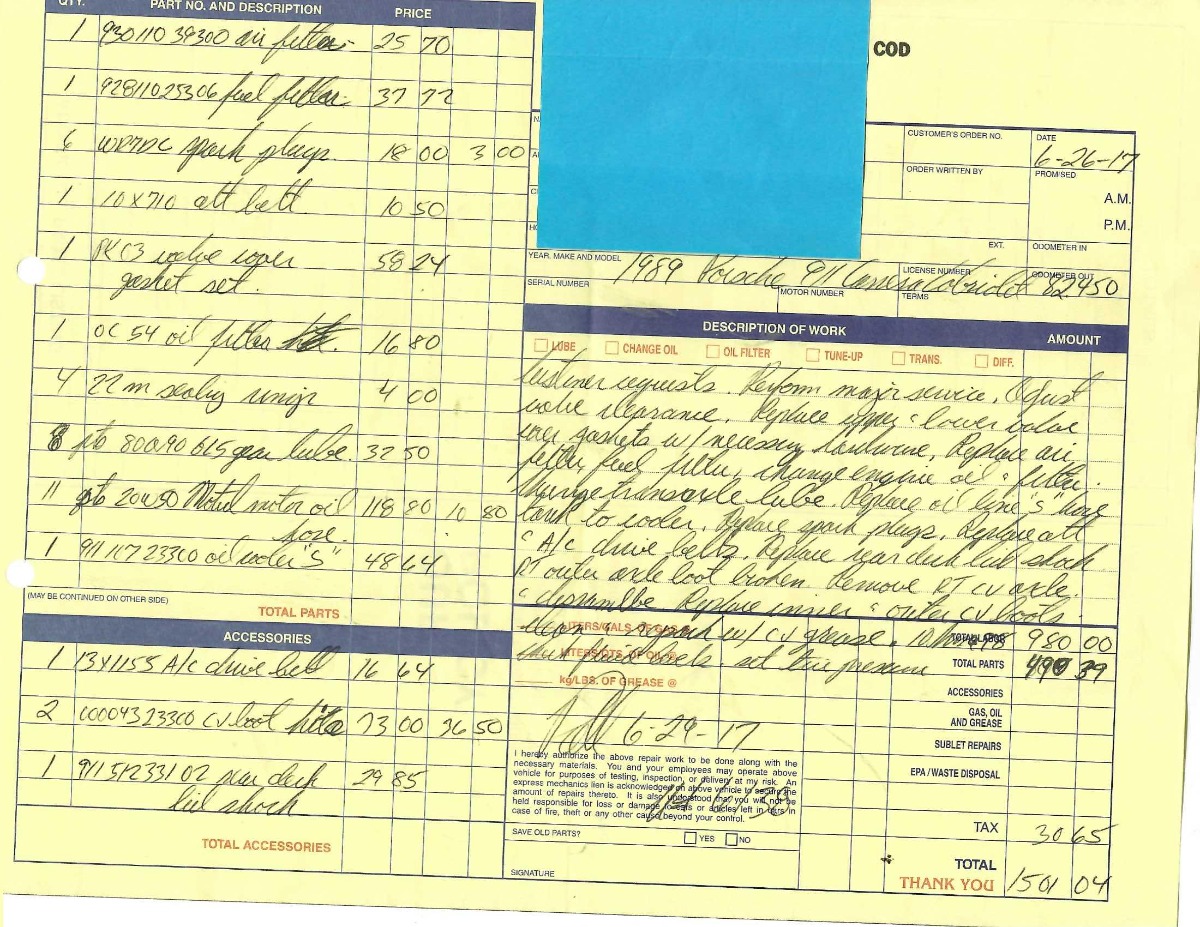 QTY. PART NO. AND DESCRIPTION PRICE
1 93011039300 air filter 25 70
1 92811025306 fuel filter 37 72
6 WR7DC spark plugs 18 00 3 00
1 10x710 alt belt 10 50
1 valve cover 58 24
gasket set.
1 OC 54 oil filter 16 80
4 22m sealing rings 4 00
8 pts gear lube 32 50
11 qts 20w50 Motul motor oil 118 80 10 80
hose.
1 oil cooler "S" 48 64
(MAY BE CONTINUED ON OTHER SIDE)
TOTAL PARTS
ACCESSORIES
1 13x1155 A/c drive belt 16 64
2 CV boot 73 00 36 50
1 rear deck 29 85
lid shock
TOTAL ACCESSORIES
COD
CUSTOMER'S ORDER NO. DATE
6-26-17
ORDER WRITTEN BY PROMISED
A.M.
P.M.
EXT. ODOMETER IN
YEAR, MAKE AND MODEL LICENSE NUMBER ODOMETER OUT
1989 Porsche 911 Carrera Cabriolet 82450
SERIAL NUMBER MOTOR NUMBER TERMS
DESCRIPTION OF WORK AMOUNT
LUBE CHANGE OIL OIL FILTER TUNE-UP TRANS. DIFF.
Customer requests. Perform major service. Adjust
valve clearance. Replace upper & lower valve
cover gaskets w/ necessary hardware. Replace air
filter, fuel filter, change engine oil & filter.
Change transaxle lube. Replace oil line "S" hose
tank to cooler. Replace spark plugs. Replace alt
& A/C drive belts. Replace rear deck lid shock
RT outer axle boot broken. Remove RT CV axle.
& disassemble. Replace inner & outer CV boots.
clean & repack w/ CV grease.
fluid levels. set tire pressure
LITERS/GALS. OF GAS @
LITERS/QTS. OF OIL @
kg/LBS. OF GREASE @
TOTAL LABOR 980 00
TOTAL PARTS 490 39
ACCESSORIES
GAS, OIL
AND GREASE
SUBLET REPAIRS
EPA / WASTE DISPOSAL
TAX 30 65
TOTAL
THANK YOU 1501 04
6-29-17
I hereby authorize the above repair work to be done along with the
necessary materials. You and your employees may operate above
vehicle for purposes of testing, inspection, or delivery at my risk. An
express mechanics lien is acknowledged on above vehicle to secure the
amount of repairs thereto. It is also understood that you will not be
held responsible for loss or damage to cars or articles left in cars in
case of fire, theft or any other cause beyond your control.
SAVE OLD PARTS? YES NO
SIGNATURE